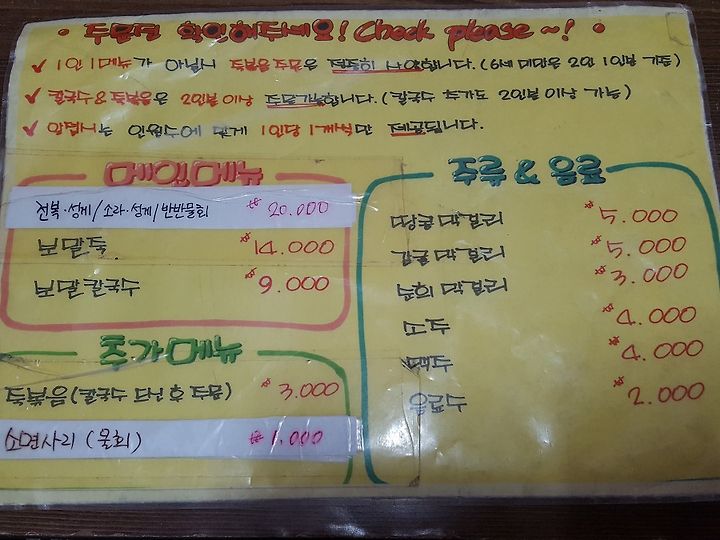 • 주문전 확인해주세요! Check please ~! •
✓ 1인 1메뉴가 아닐시 죽볶음주문은 정중히 사양합니다. (6세 미만은 2인 1인분 가능)
✓ 칼국수&죽볶음은 2인분이상 주문가능합니다. (칼국수 추가도 2인분 이상 가능)
✓ 앞접시는 인원수에 맞게 1인당 1개씩만 제공됩니다.
메인메뉴
전복·성게/소라·성게/반반물회 ₩20.000
보말죽 ₩14.000
보말칼국수 ₩9.000
추가메뉴
죽볶음(칼국수 드신 후 주문) ₩3.000
소면사리 (물회) ₩1.000
주류 & 음료
땅콩 막걸리 ₩5.000
감귤 막걸리 ₩5.000
순희 막걸리 ₩3.000
소주 ₩4.000
맥주 ₩4.000
음료수 ₩2.000